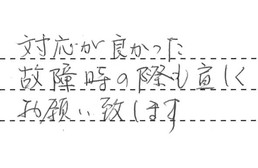 対応が良かった
故障時の際も宜しく
お願い致します